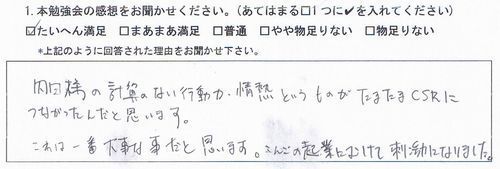 1.本勉強会の感想をお聞かせください。(あてはまる□1つに✔を入れてください)
☑たいへん満足 □まあまあ満足 □普通 □やや物足りない □物足りない
*上記のように回答された理由をお聞かせ下さい。
内田様の計算のない行動力・情熱というものがたまたまCSRに
つながったんだと思います。
これは一番大事な事だと思います。こんごの起業にむけて刺激になりました。